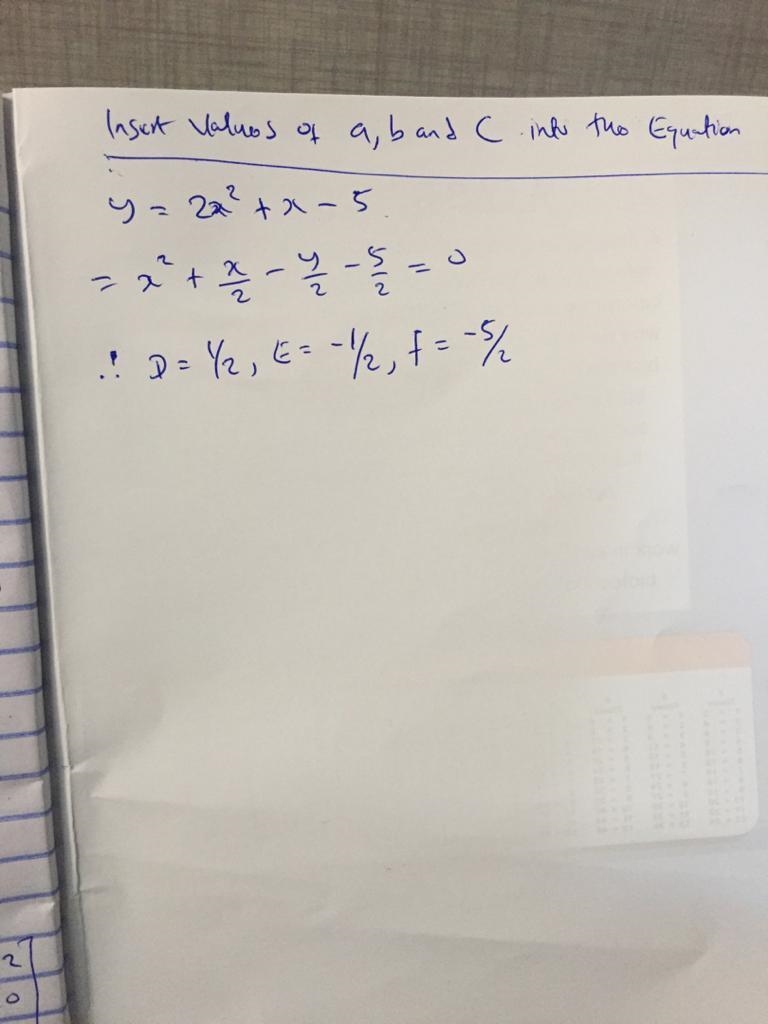 Insert Values of a, b and C into the Equation
y = 2x² + x - 5
= x² + x/2 - y/2 - 5/2 = 0
∴ D = 1/2, E = -1/2, f = -5/2
2
0